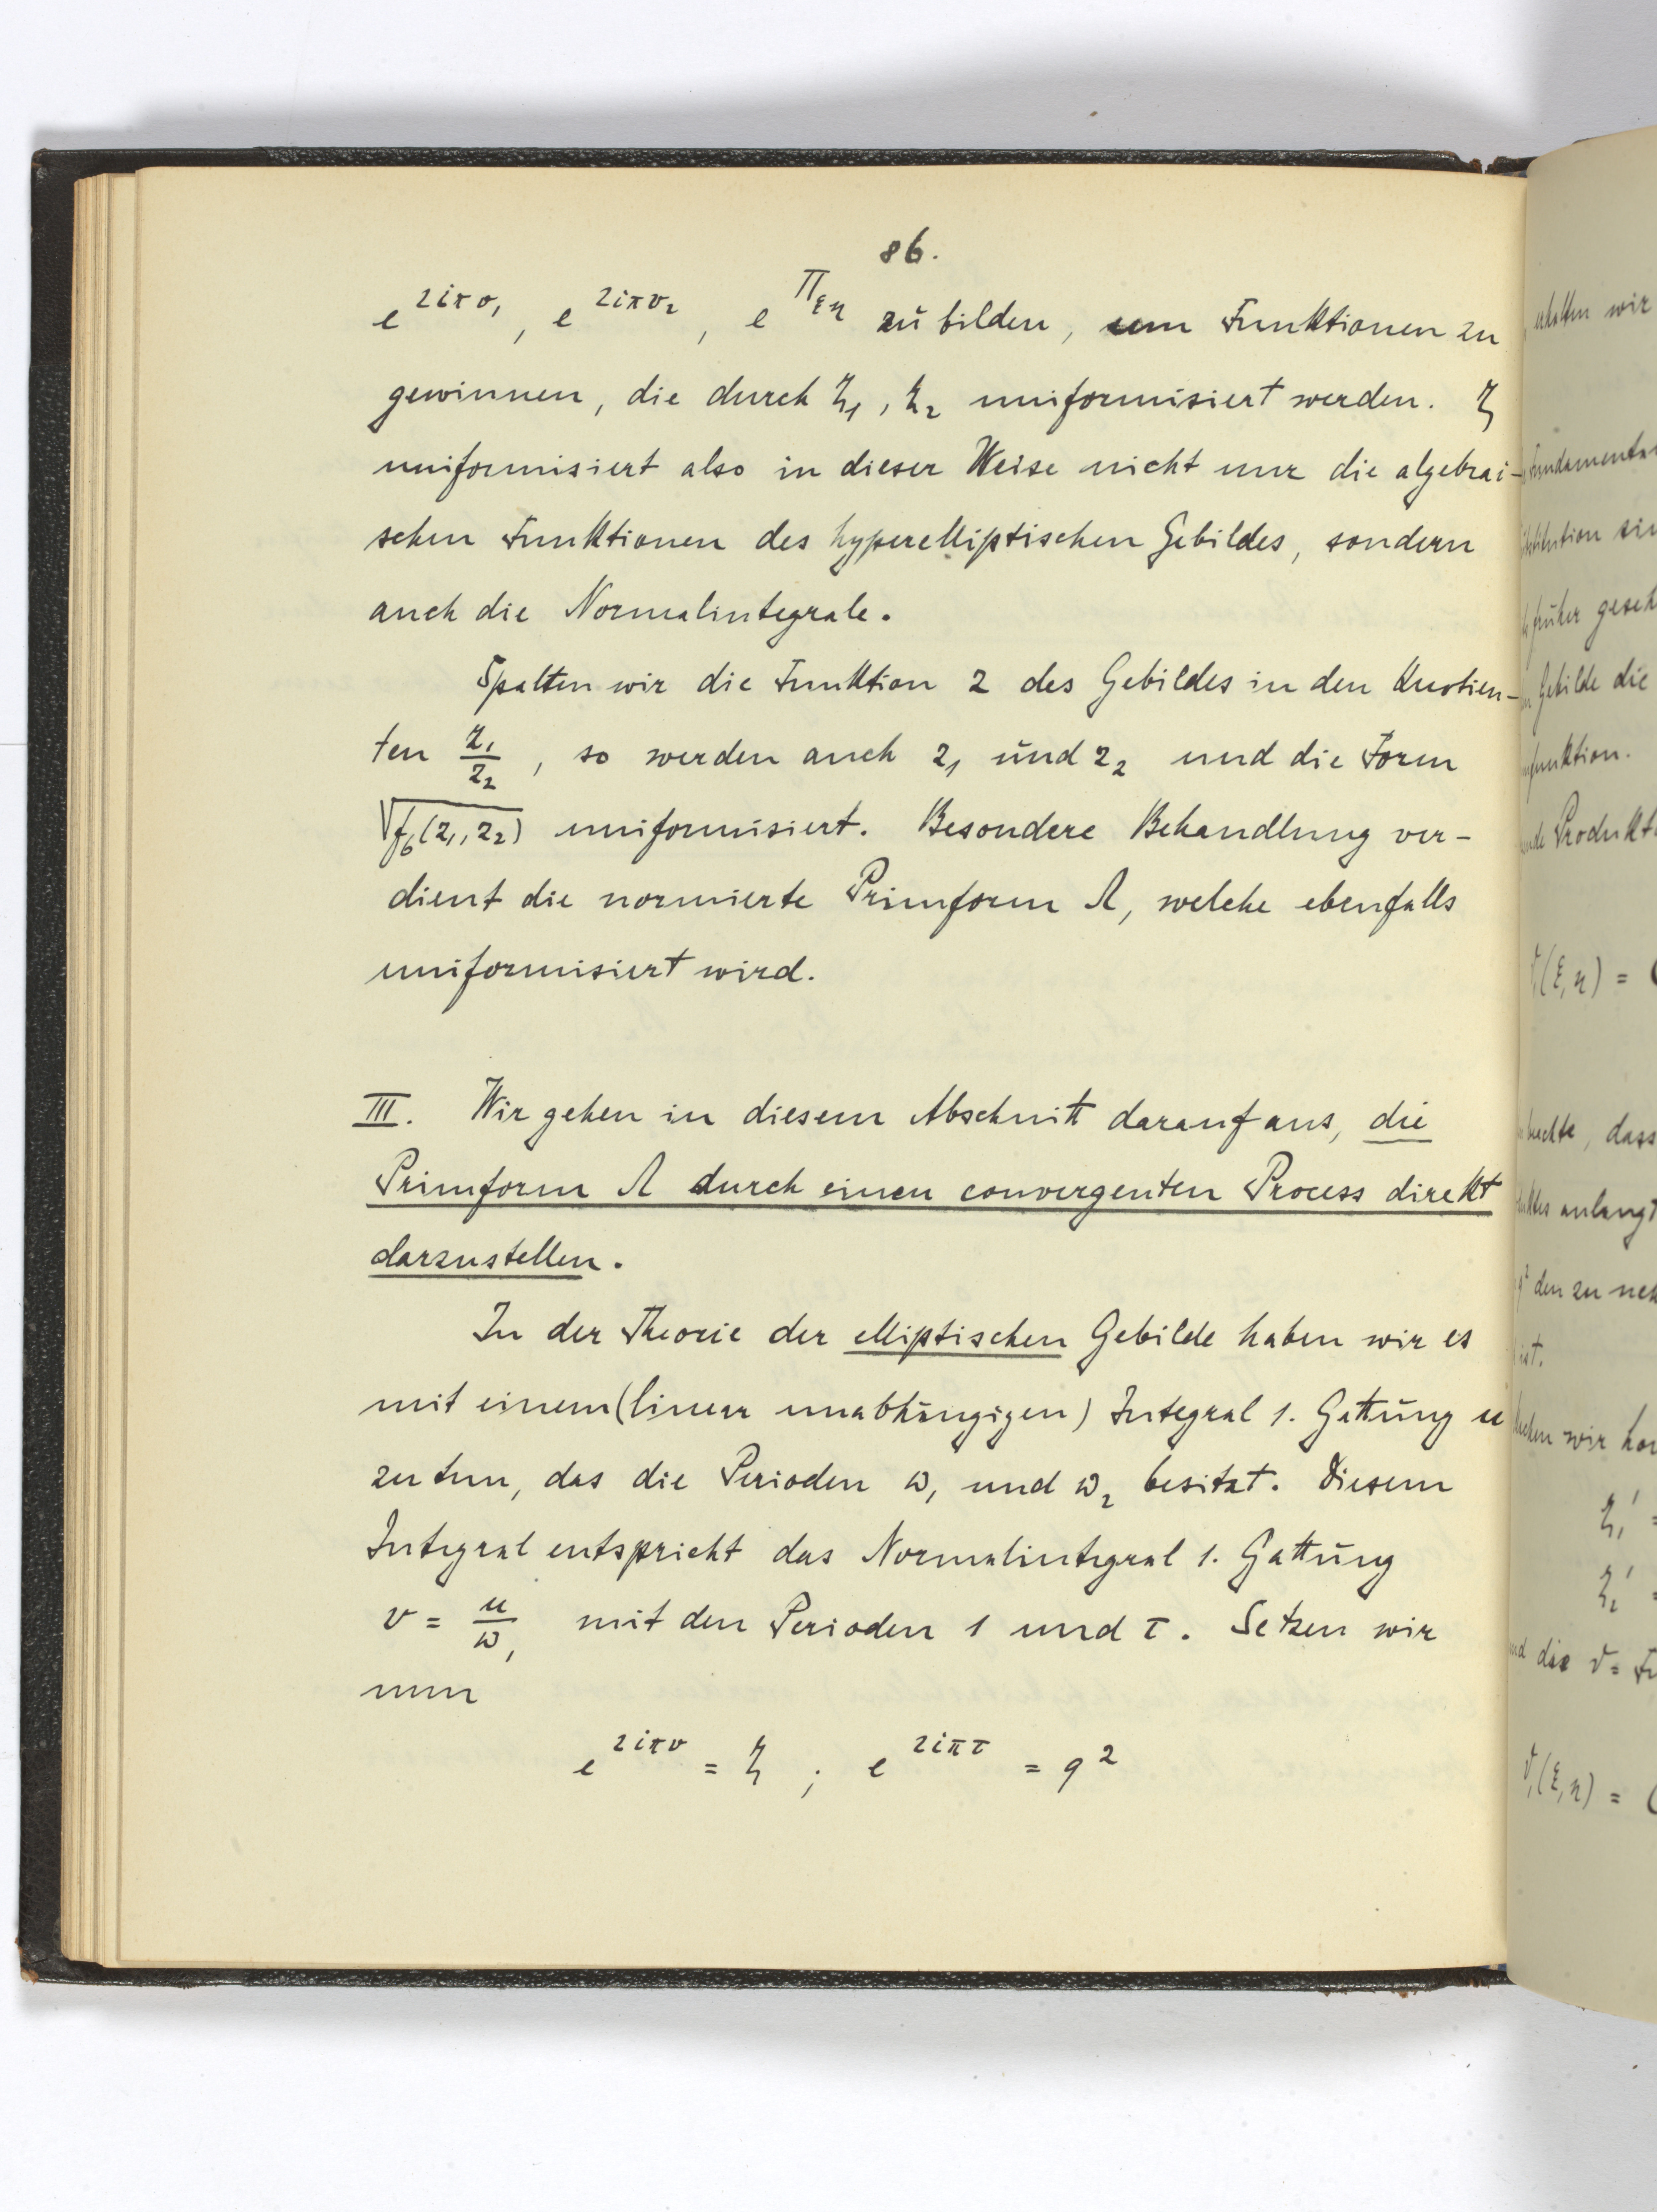 86.
e^{2iπv₁}, e^{2iπv₂}, e^{Π_{ξη}} zu bilden, um Funktionen zu
gewinnen, die durch ζ₁, ζ₂ uniformisiert werden. ζ
uniformisiert also in dieser Weise nicht nur die algebrai-
schen Funktionen des hyperelliptischen Gebildes, sondern
auch die Normalintegrale.
Spalten wir die Funktion z des Gebildes in den Quotien-
ten z₁/z₂, so werden auch z₁ und z₂ und die Form
√f₆(z₁, z₂) uniformisiert. Besondere Behandlung ver-
dient die normierte Primform Λ, welche ebenfalls
uniformisiert wird.
III. Wir gehen in diesem Abschnitt darauf aus, die
Primform Λ durch einen convergenten Process direkt
darzustellen.
In der Theorie der elliptischen Gebilde haben wir es
mit einem (linear unabhängigen) Integral 1. Gattung u
zu tun, das die Perioden ω₁ und ω₂ besitzt. Diesem
Integral entspricht das Normalintegral 1. Gattung
v = u/ω₁ mit den Perioden 1 und τ. Setzen wir
nun
e^{2iπv} = ζ ; e^{2iπτ} = q²
erhalten wir
früher geseh
Gebilde die
funktion.
Produkt
(ξ, η) =
dass
anlangt
den zu neh
ist.
wir
ζ₁′ =
ζ₂′ =
die ϑ = Fu
ϑ₁(ξ, η) = (